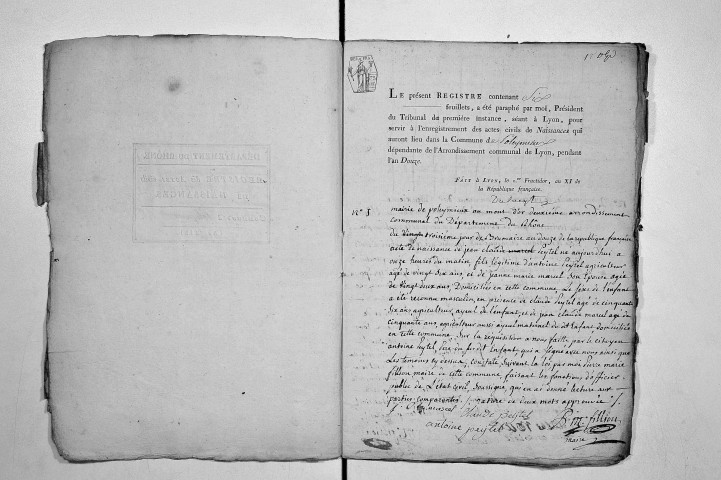 LE présent REGISTRE contenant Six
feuillets, a été paraphé par moi, Président
du Tribunal de première instance, séant à Lyon, pour
servir à l'enregistrement des actes civils de Naissances qui
auront lieu dans la Commune de Poleymieux
dépendante de l'Arrondissement communal de Lyon, pendant
l'an Douze.
FAIT à LYON, le 1.er Fructidor, an XI de
la République française.
N.o 1
mairie de poleymieux au mont d'or deuxieme arrondissement
communal du Département du Rhône
du troisieme jour de Brumaire an douze de la republique française
acte de naissance de jean claude peytel né aujourdhui a
onze heures du matin, fils légitime d'antoine peytel agriculteur
agé de vingt six ans, et de jeanne marie marcel son Epouse agée
de vingt deux ans, Domiciliés en cette commune, Le sexe de l'enfant
a été reconnu masculin, en présence de claude peytel agé de cinquante
six ans agriculteur, ayeul de l'enfant, et de jean claude marcel agé de
cinquante ans, agriculteur aussi ayeul maternel du dit Enfant domiciliés
en cette commune. Sur la requisition a nous faite, par le citoyen
antoine peytel, père du dit Enfant, qui a signé avec nous ainsi que
Les temoins cy dessus, constaté suivant la loi par moi pierre marie
fillion maire de cette commune faisant les fonctions d'officier
public de l'état civil, soussigné, qui en ai donné lecture aux
parties comparantes. rature de deux mots approuvée
J. C. marcel Claude peytel P. m. fillion
antoine peytel maire